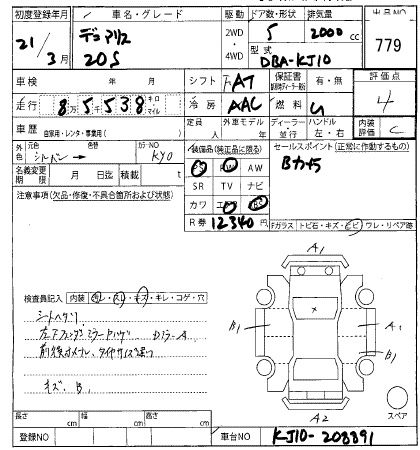 初度登録年月 車名・グレード 駆動 ドア数・形状 排気量 出品NO
21/3月 デュアリス 20S 2WD・4WD 5 2000cc 779
型式 DBA-KJ10
車検 年 月 シフト FAT 保証書 有・無 評価点 4
走行 8万5千538キロ マイル 冷房 AAC 燃料 G
車歴 自家用・レンタ・事業用( ) 定員 人 外車モデル 年 ディーラー 並行 ハンドル 左・右 内装評価 C
外色 元色 シルバー→ 色替 カラーNO KY0
装備品(純正品に限る) セールスポイント(正常に作動するもの)
名義変更期限 月 日迄 積載 t
PS PW AW Bカメラ
注意事項(欠品・修復・不具合箇所および状態) SR TV ナビ
カワ エアB ABS
R券 12340円 Fガラス トビ石・キズ・ヒビ ワレ・リペア跡
A1
検査員記入 内装 スレ・キズ・キレ・コゲ・穴
シートヘタリ
左フェンダーミラー
前後ホイール、タイヤサイズ違う
キズ、B、
B1 × A1
B1
A2 スペア
長さ cm 幅 cm 高さ cm
登録NO 車台NO KJ10-208891